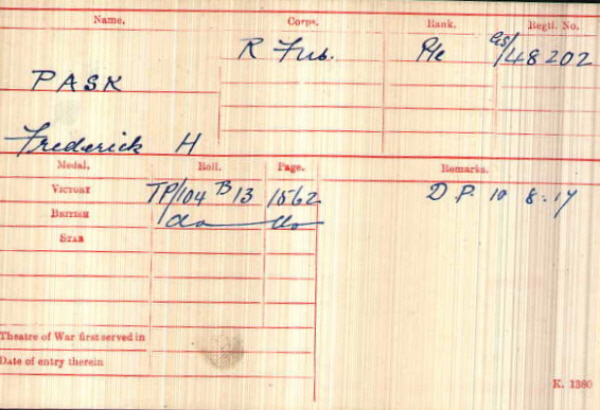 Name. Corps. Rank. Regtl. No.
R Fus. Pte GS/48202
PASK
Frederick H
Medal. Roll. Page. Remarks.
VICTORY TP/104 B 13 1562 D.P. 10 8.17
BRITISH do do
STAR
Theatre of War first served in
Date of entry therein
K. 1380